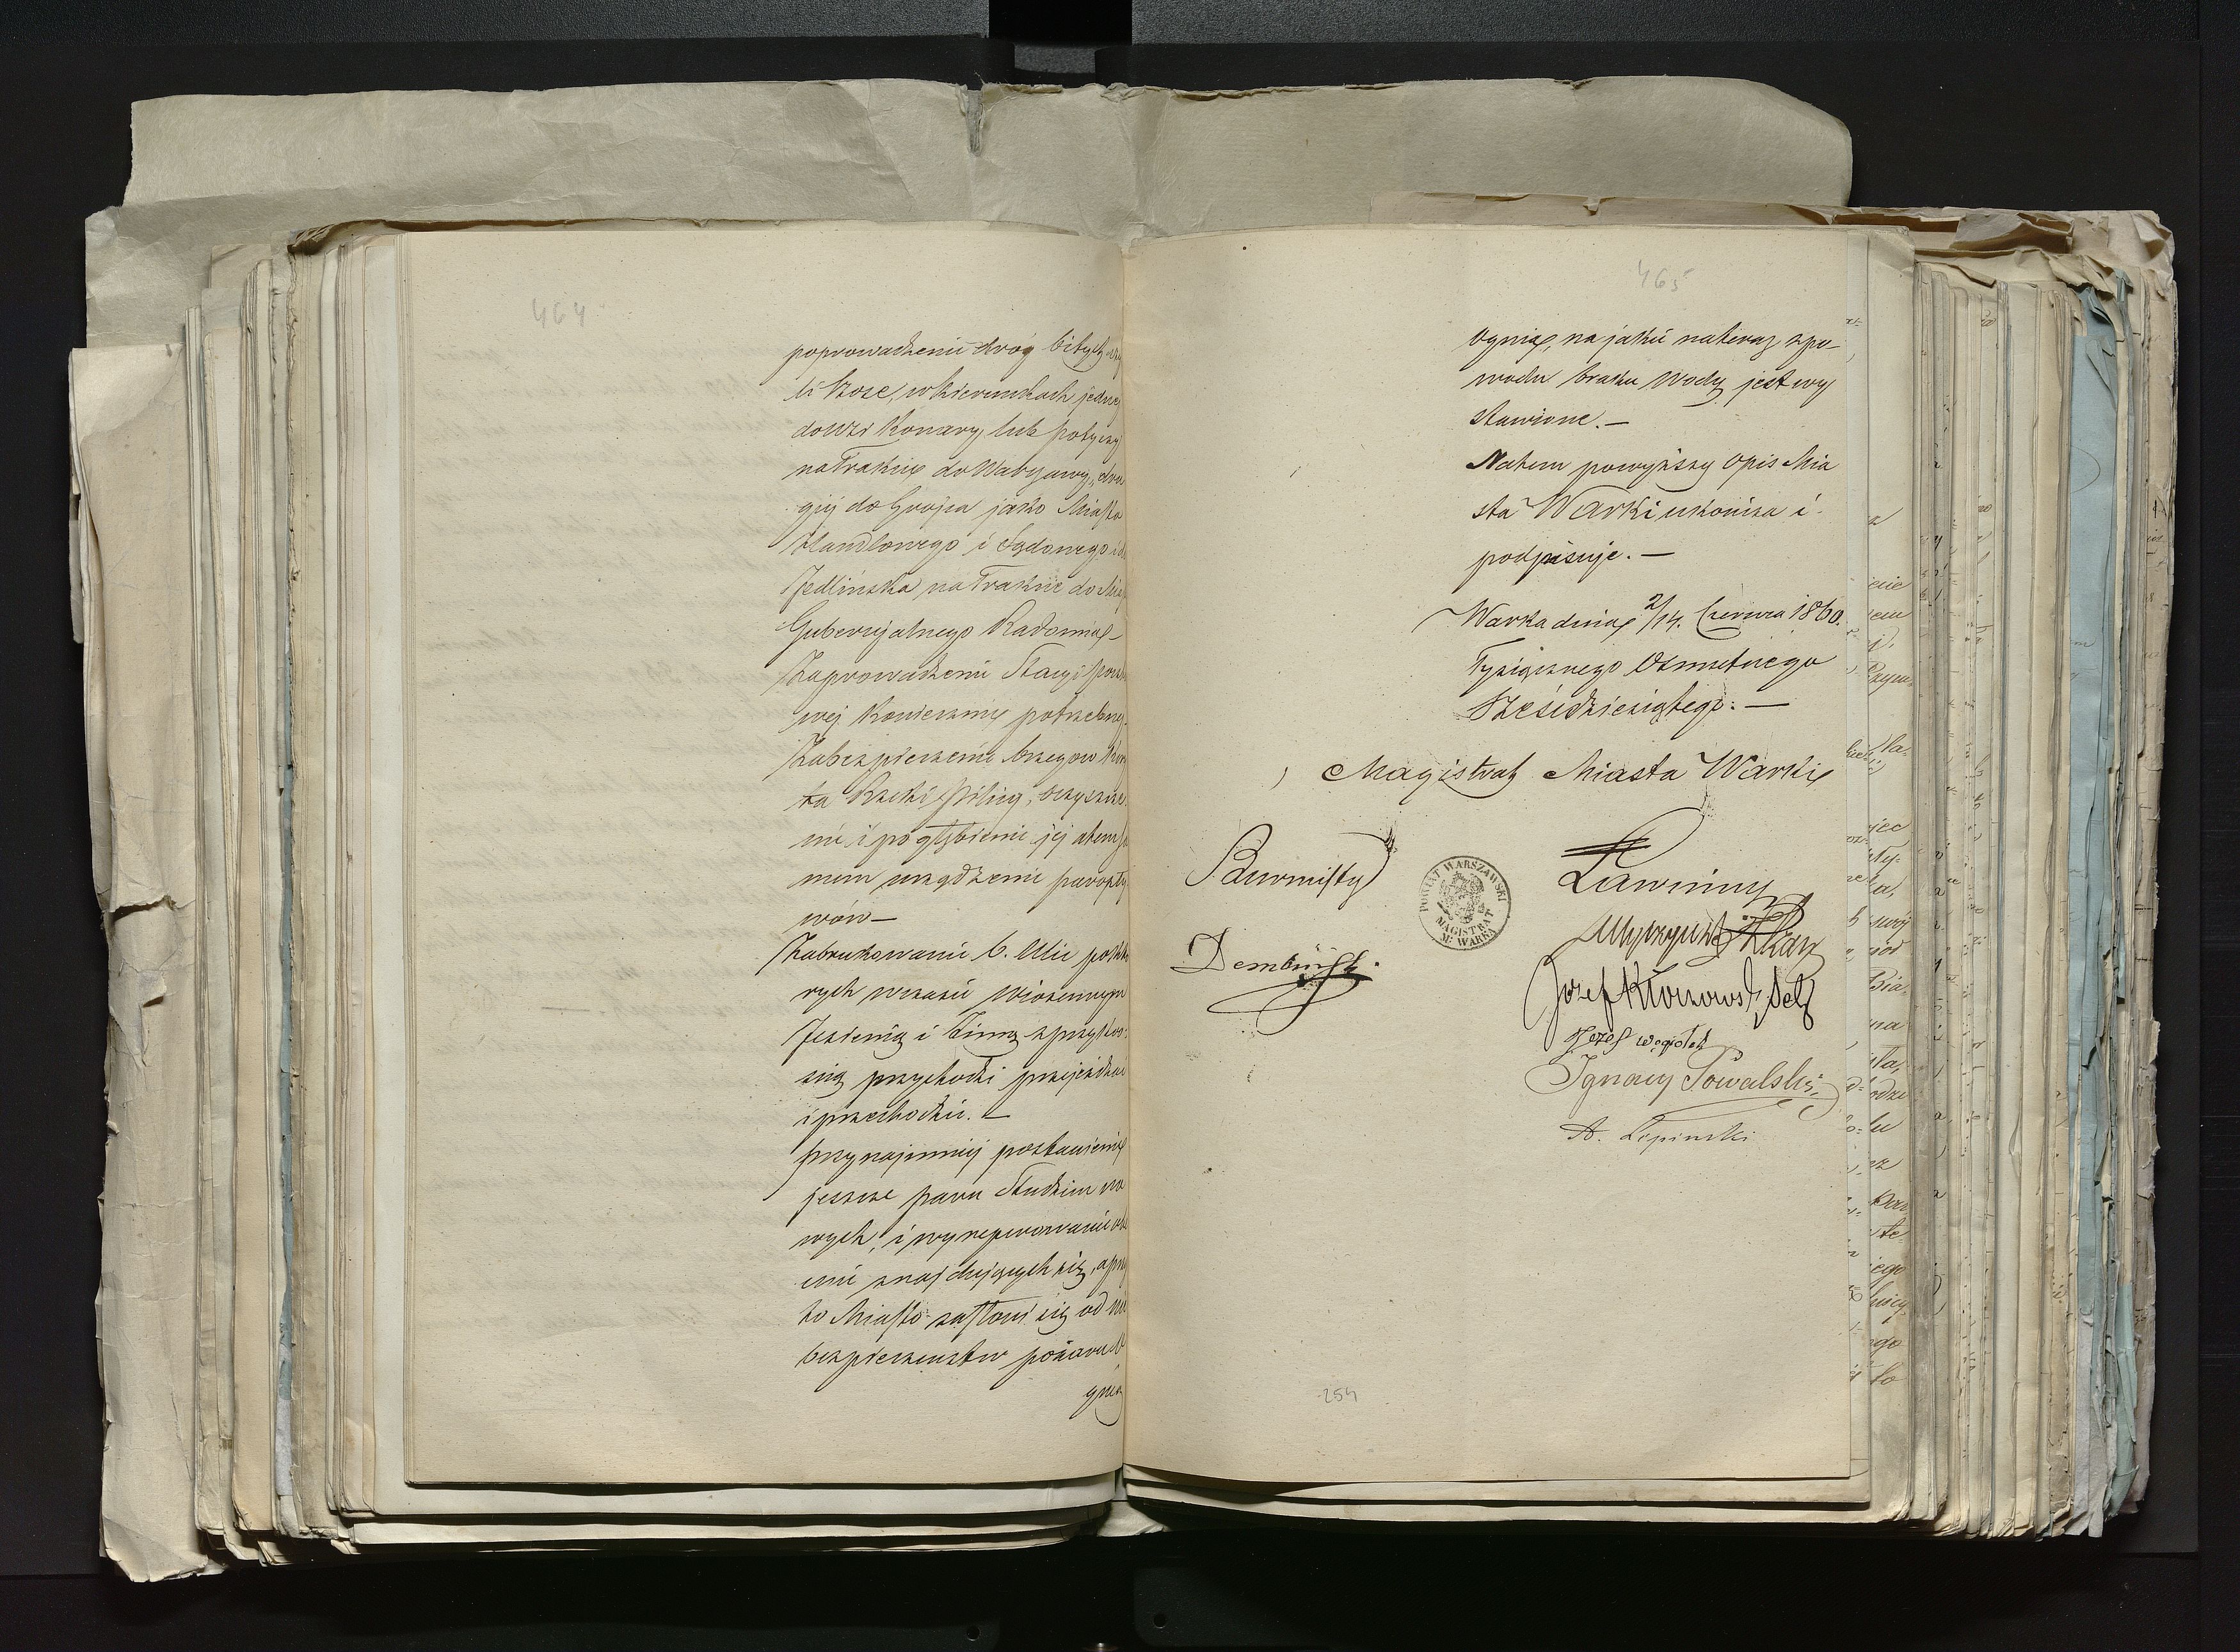 464
poprowadzenie dróg bitych czy
li Szose, w kierunkach jednej
do wsi Konary, lub Potyczy
na Trakcie do Warszawy, dru
giej do Grójca jako Miasta
Handlowego i Sądowego i do
Jedlinska na Trakcie do Mias
Gubernjalnego Radomia
Zaprowadzenie Stacyi poczto
wej koniecznie potrzebnej
Zabezpieczenie brzegow kory
ta Rzeki Pilicy, oczyszcze
nie i pogłębienie jej a tem sa
mem urządzenie paropły
wów —
Zabrukowanie 6. Ulic po któ
rych w czasie wiosennym
Jesienią i Zimą z przykroś
cią przychodzi przejeżdżać
i przechodzić. —
Przynajmniej postawienie
jeszcze paru Studzien no
wych, i wyreperowanie obe
cnie znajdujących się, a przy
to Miasto zasłoni się od nie
bezpieczenstw pożaru O
gnia
465
Ognia, na jakie na teraz z po-
wodu braku Wody jest wy
stawione. —
Na tem powyższy Opis Mia
sta Warki ukończa i
podpisuje. —
Warka dnia 2/14. Czerwca 1860.
Tysiącznego Ośmsetnego
Sześćdziesiątego. —
Magistrat Miasta Warki
Burmistrz
Dembiński
POWIAT WARSZAWSKI
MAGISTRAT
M: WARKA
Ławnicy
Józef
Jozef
Ignacy Kowalski
A. Lipinski
254